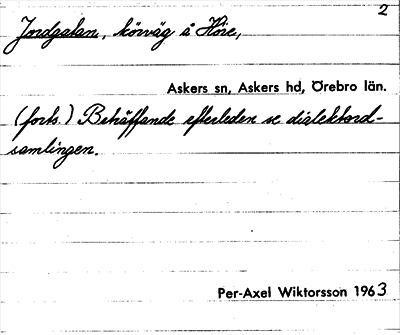 2
Jordgatan, körväg å Höie,
Askers sn, Askers hd, Örebro län.
(forts.) Beträffande efterleden se dialektord-
samlingen.
Per-Axel Wiktorsson 1963